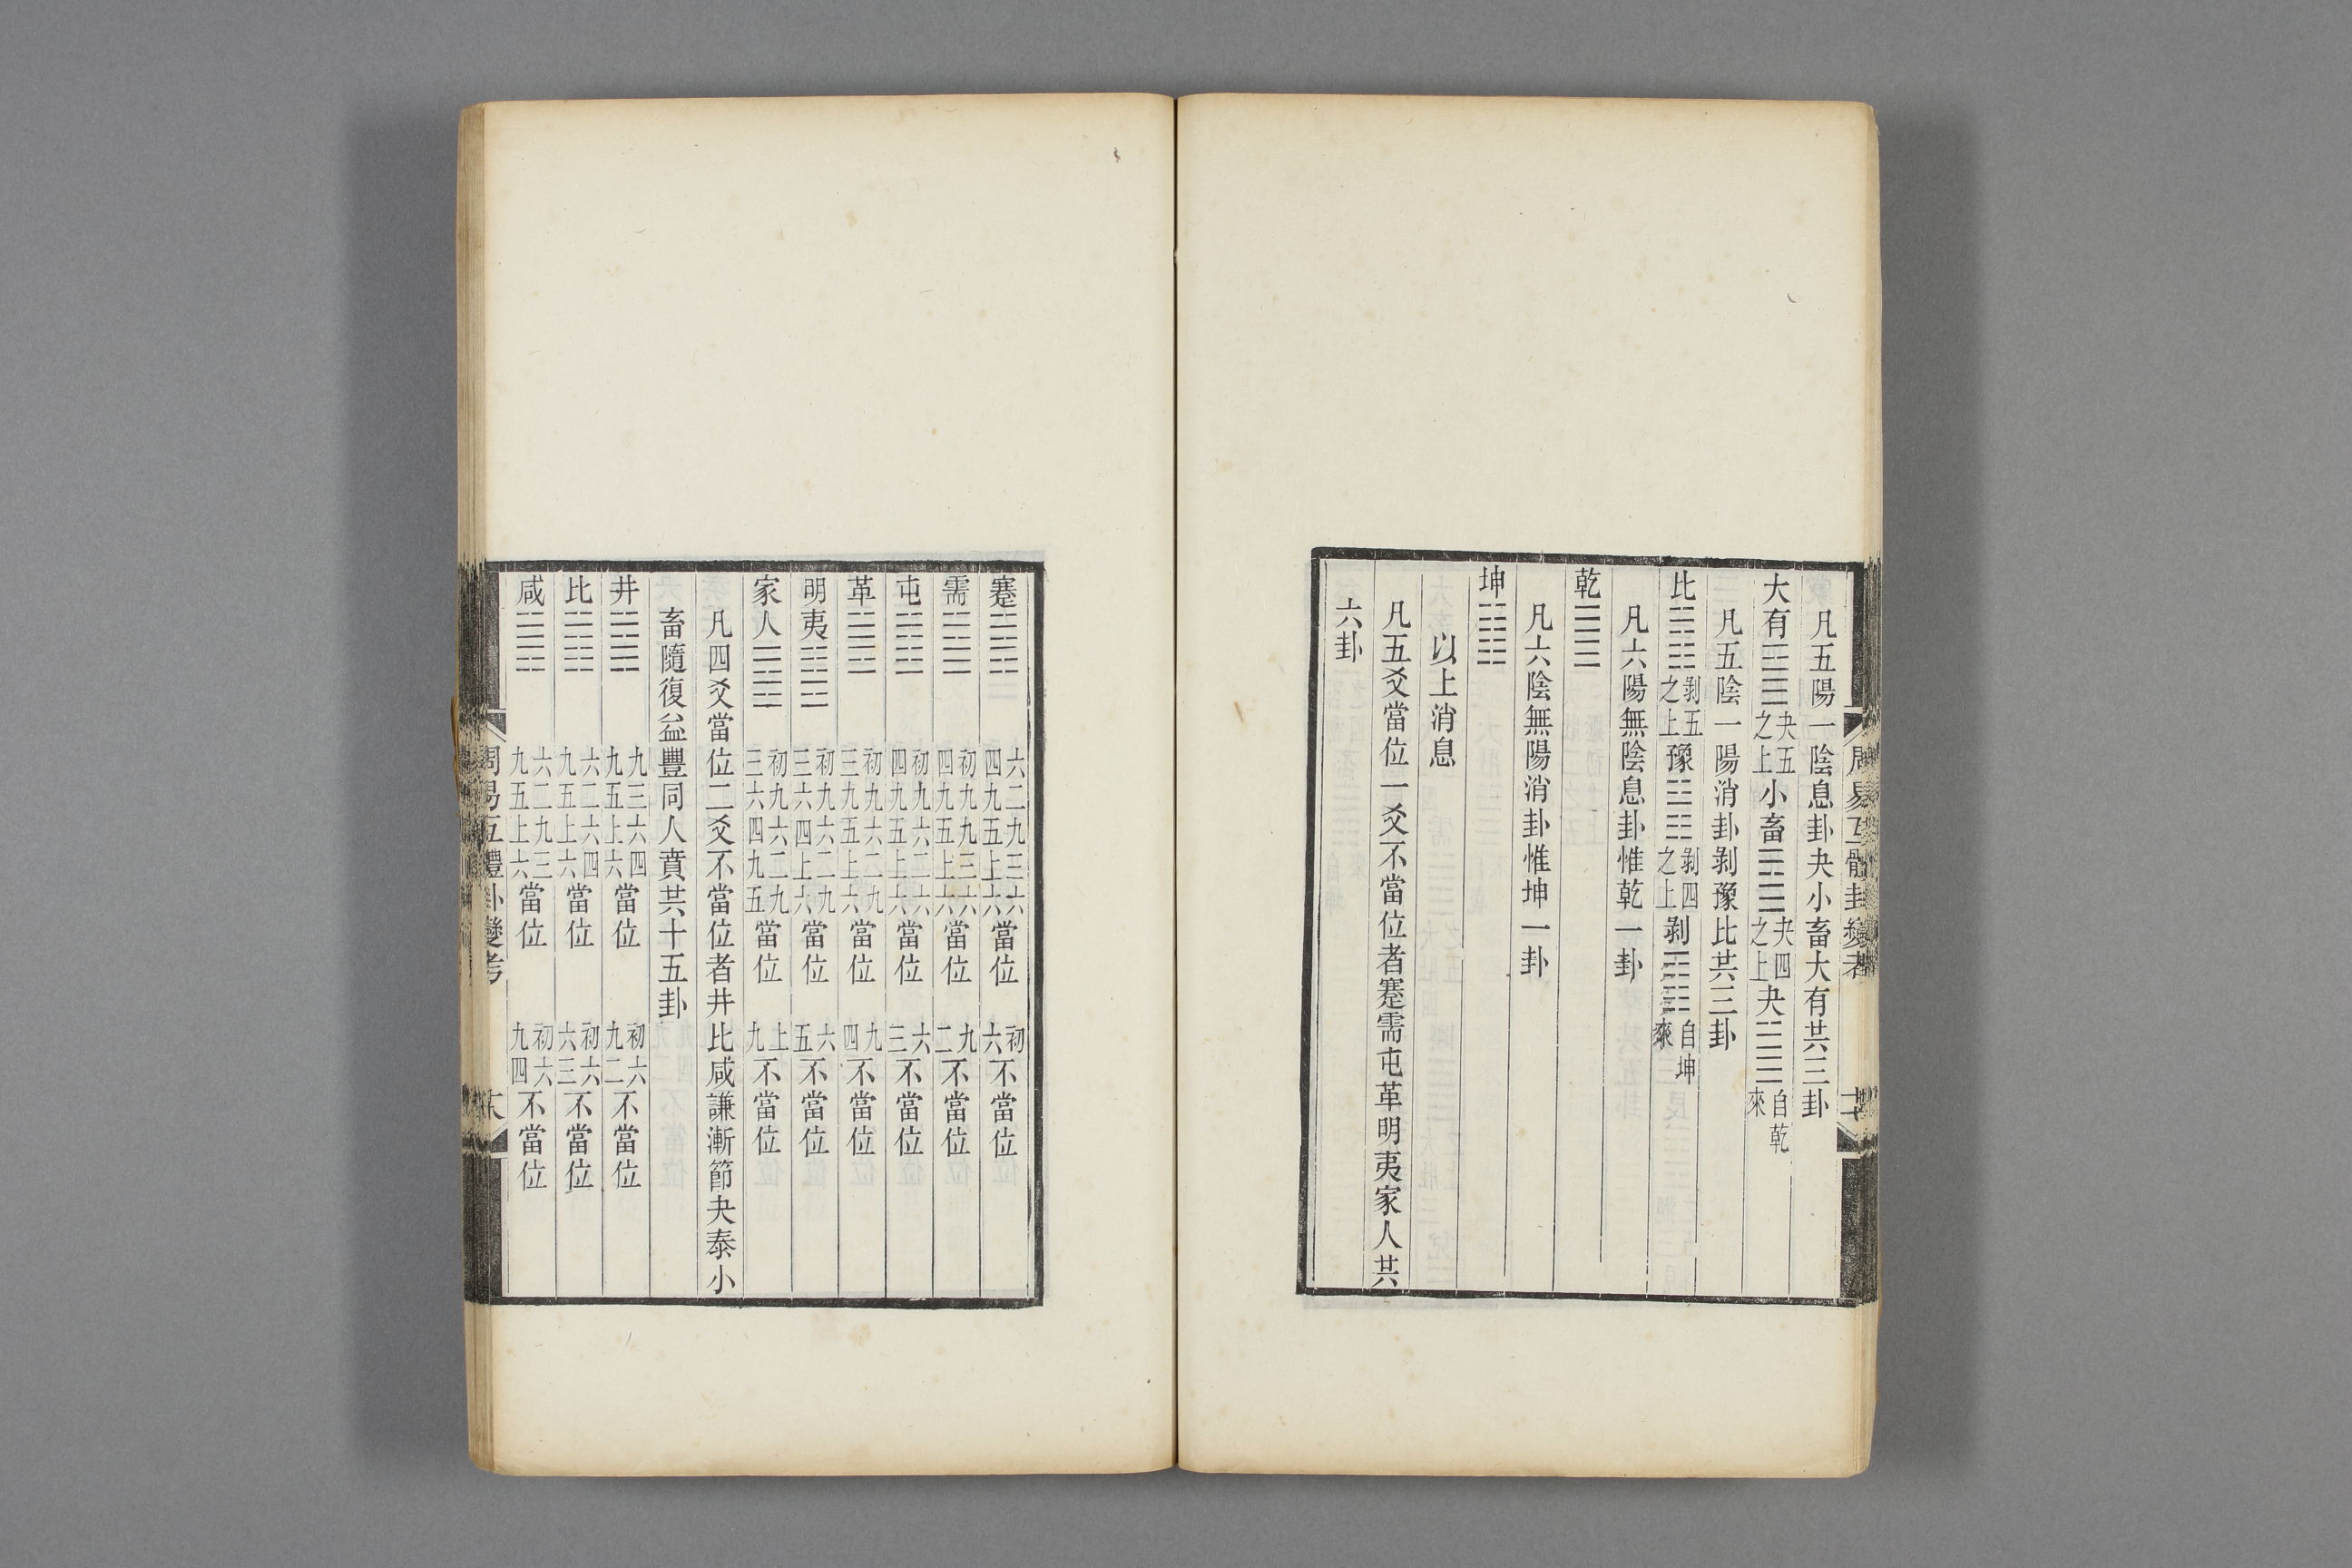 周易互體卦變考
凡五陽一陰息卦夬小畜大有共三卦
大有䷍夬五之上小畜䷈夬四之上夬䷪自乾來
凡五陰一陽消卦剝豫比共三卦
比䷇剝五之上豫䷏剝四之上剝䷖自坤來
凡六陽無陰息卦惟乾一卦
乾䷀
凡六陰無陽消卦惟坤一卦
坤䷁
以上消息
凡五爻當位一爻不當位者蹇需屯革明夷家人共
六卦
蹇䷦六二九三六四九五上六當位 初六不當位
需䷄初九九三六四九五上六當位 九二不當位
屯䷂初九六二六四九五上六當位 六三不當位
革䷰初九六二九三九五上六當位 九四不當位
明夷䷣初九六二九三六四上六當位 六五不當位
家人䷤初九六二九三六四九五當位 上九不當位
凡四爻當位二爻不當位者井比咸謙漸節夬泰小
畜隨復益豐同人賁共十五卦
井䷯九三六四九五上六當位 初六九二不當位
比䷇六二六四九五上六當位 初六六三不當位
咸䷞六二九三九五上六當位 初六九四不當位
周易互體卦變考